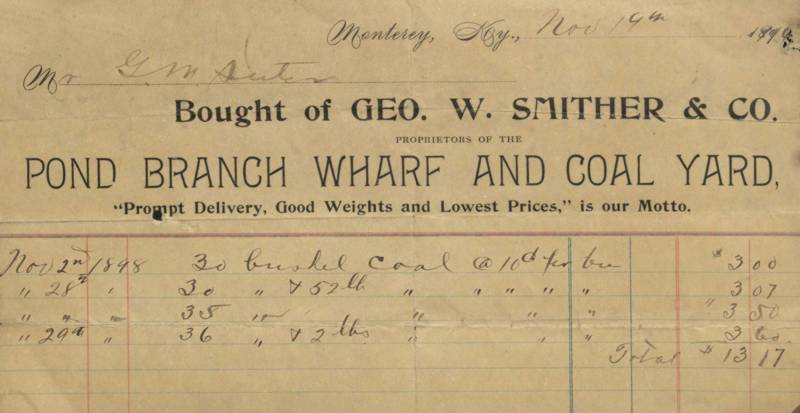 Monterey, Ky., Nov 19th 189
Mr G. M. Suter
Bought of GEO. W. SMITHER & CO.
PROPRIETORS OF THE
POND BRANCH WHARF AND COAL YARD,
"Prompt Delivery, Good Weights and Lowest Prices," is our Motto.
Nov 2nd 1898 30 bushel coal @ 10¢ per bu $ 3 00
" 28th " 30 " & 52 lb " " " " " 3 07
" " " 35 " " " " " 3 50
" 29th " 36 " & 2 lbs " " " 3 60
Total $ 13 17